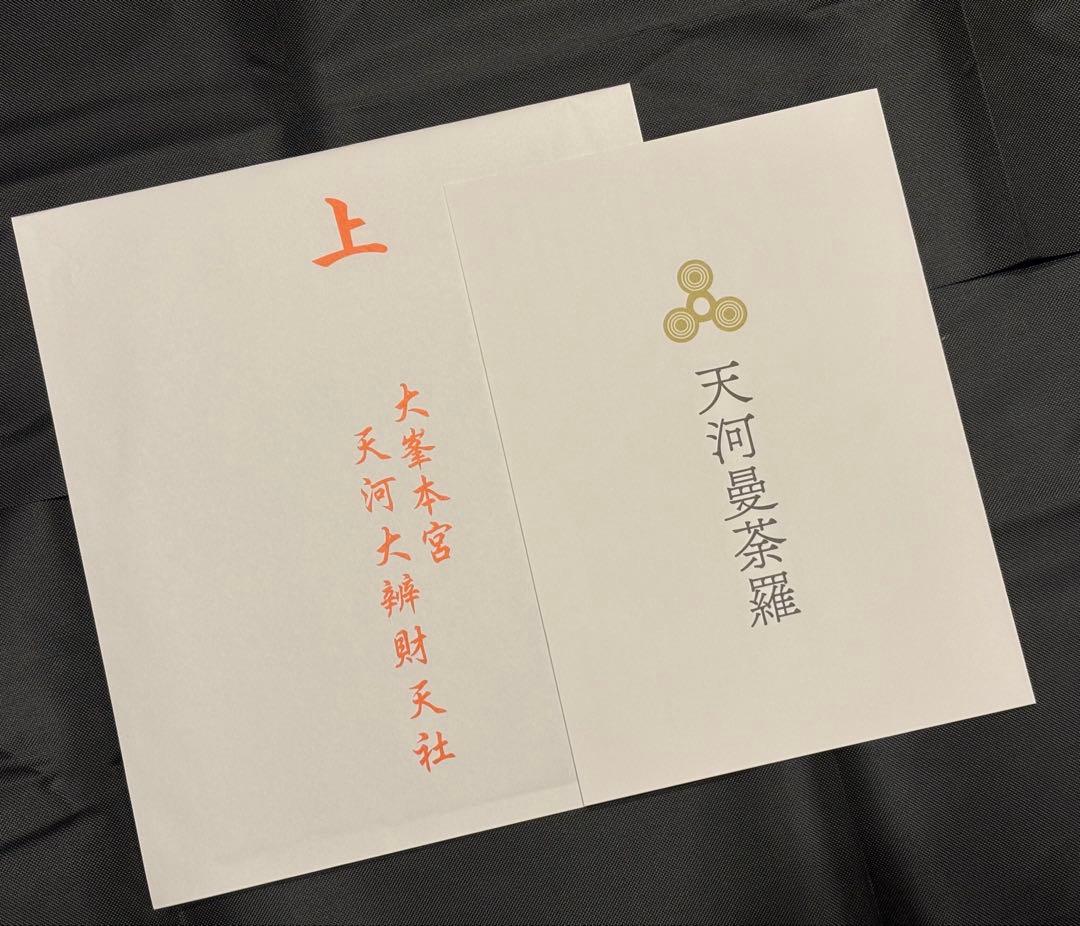 上
大峯本宮
天河大辨財天社
天河曼荼羅